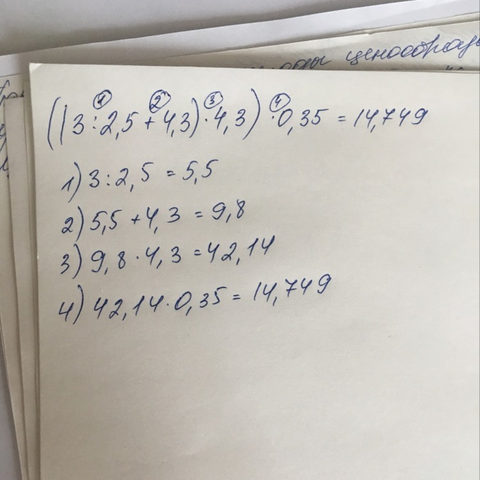 оды ценообразо
① ② ③ ④
((3:2,5+4,3)·4,3)·0,35=14,749
1) 3:2,5=5,5
2) 5,5+4,3=9,8
3) 9,8·4,3=42,14
4) 42,14·0,35=14,749